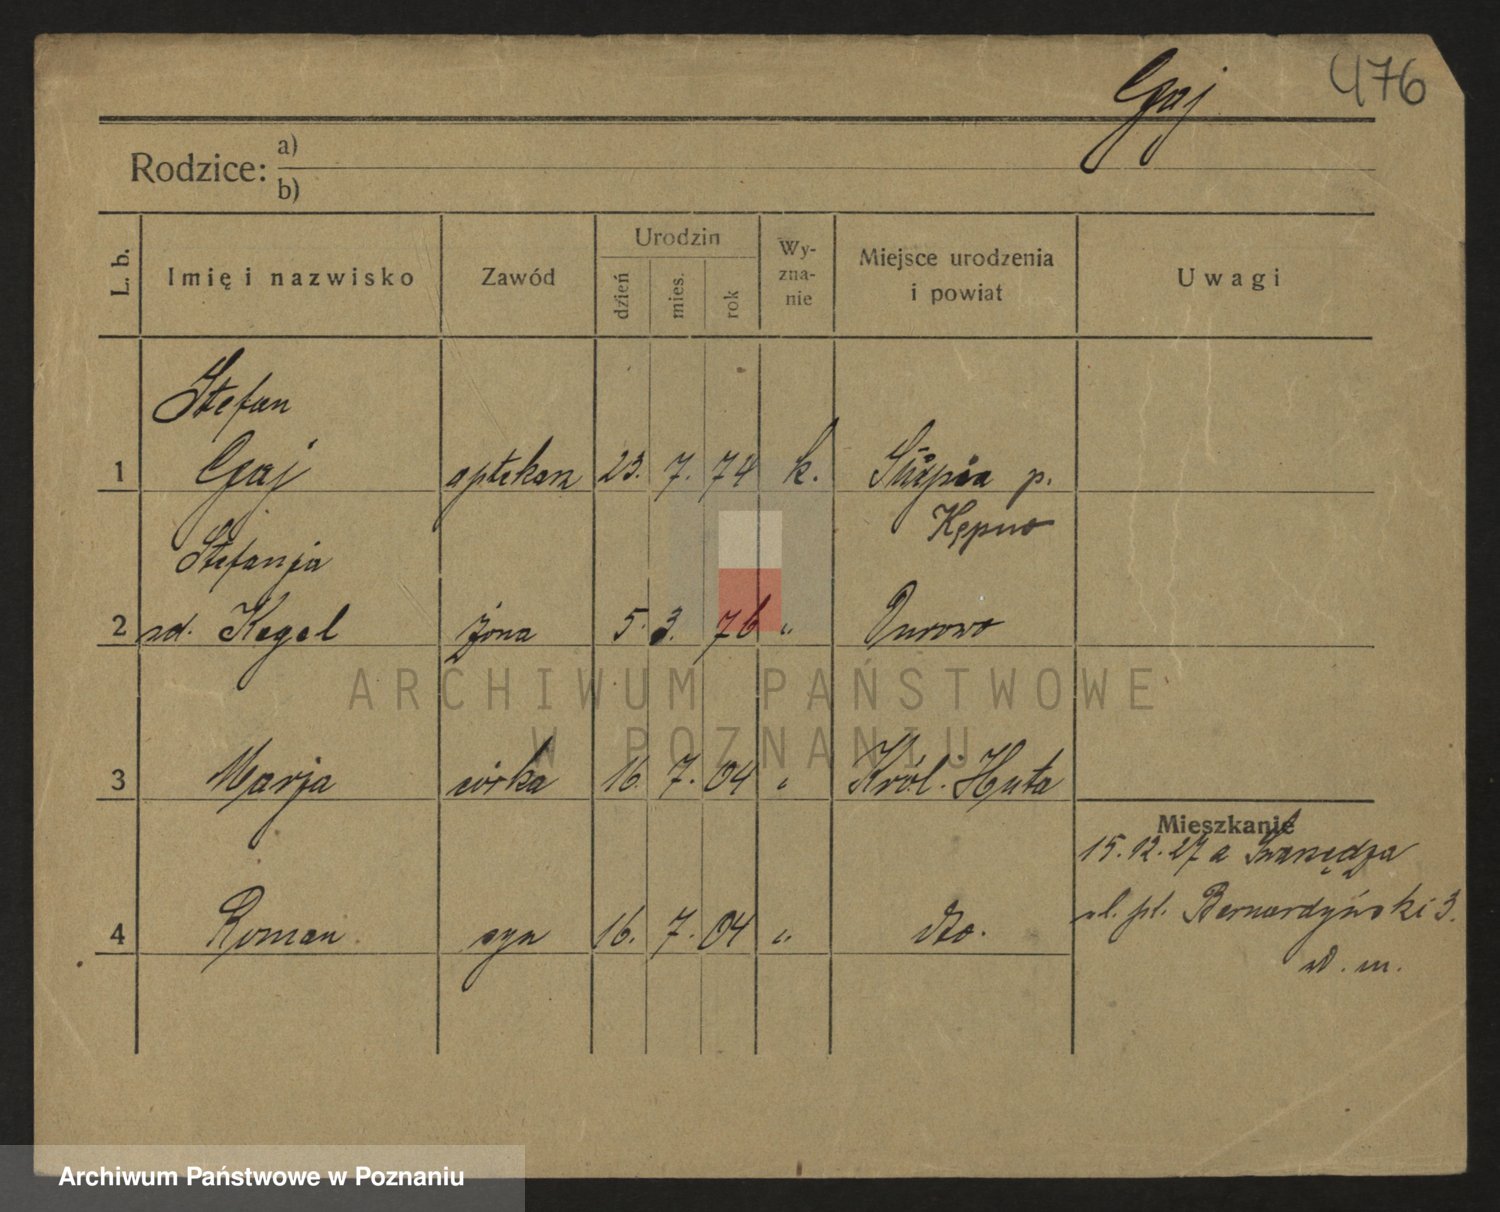 Gaj 476
Rodzice: a)
b)
L. b. Imię i nazwisko Zawód Urodzin dzień mies. rok Wy-
zna-
nie Miejsce urodzenia
i powiat Uwagi
Stefan
1 Gaj aptekarz 23. 7. 74 k. Słupia p.
Kępno
Stefanja
2 zd. Kegel żona 5. 3. 76 " Durowo
ARCHIWUM PAŃSTWOWE
W POZNANIU
3 Marja córka 16. 7. 04 " Król. Huta
Mieszkanie
15.12.27 z Swarzędza
ul. pl. Bernardyński 3.
4 Roman syn 16. 7. 04 " dto.
w. m.
Archiwum Państwowe w Poznaniu